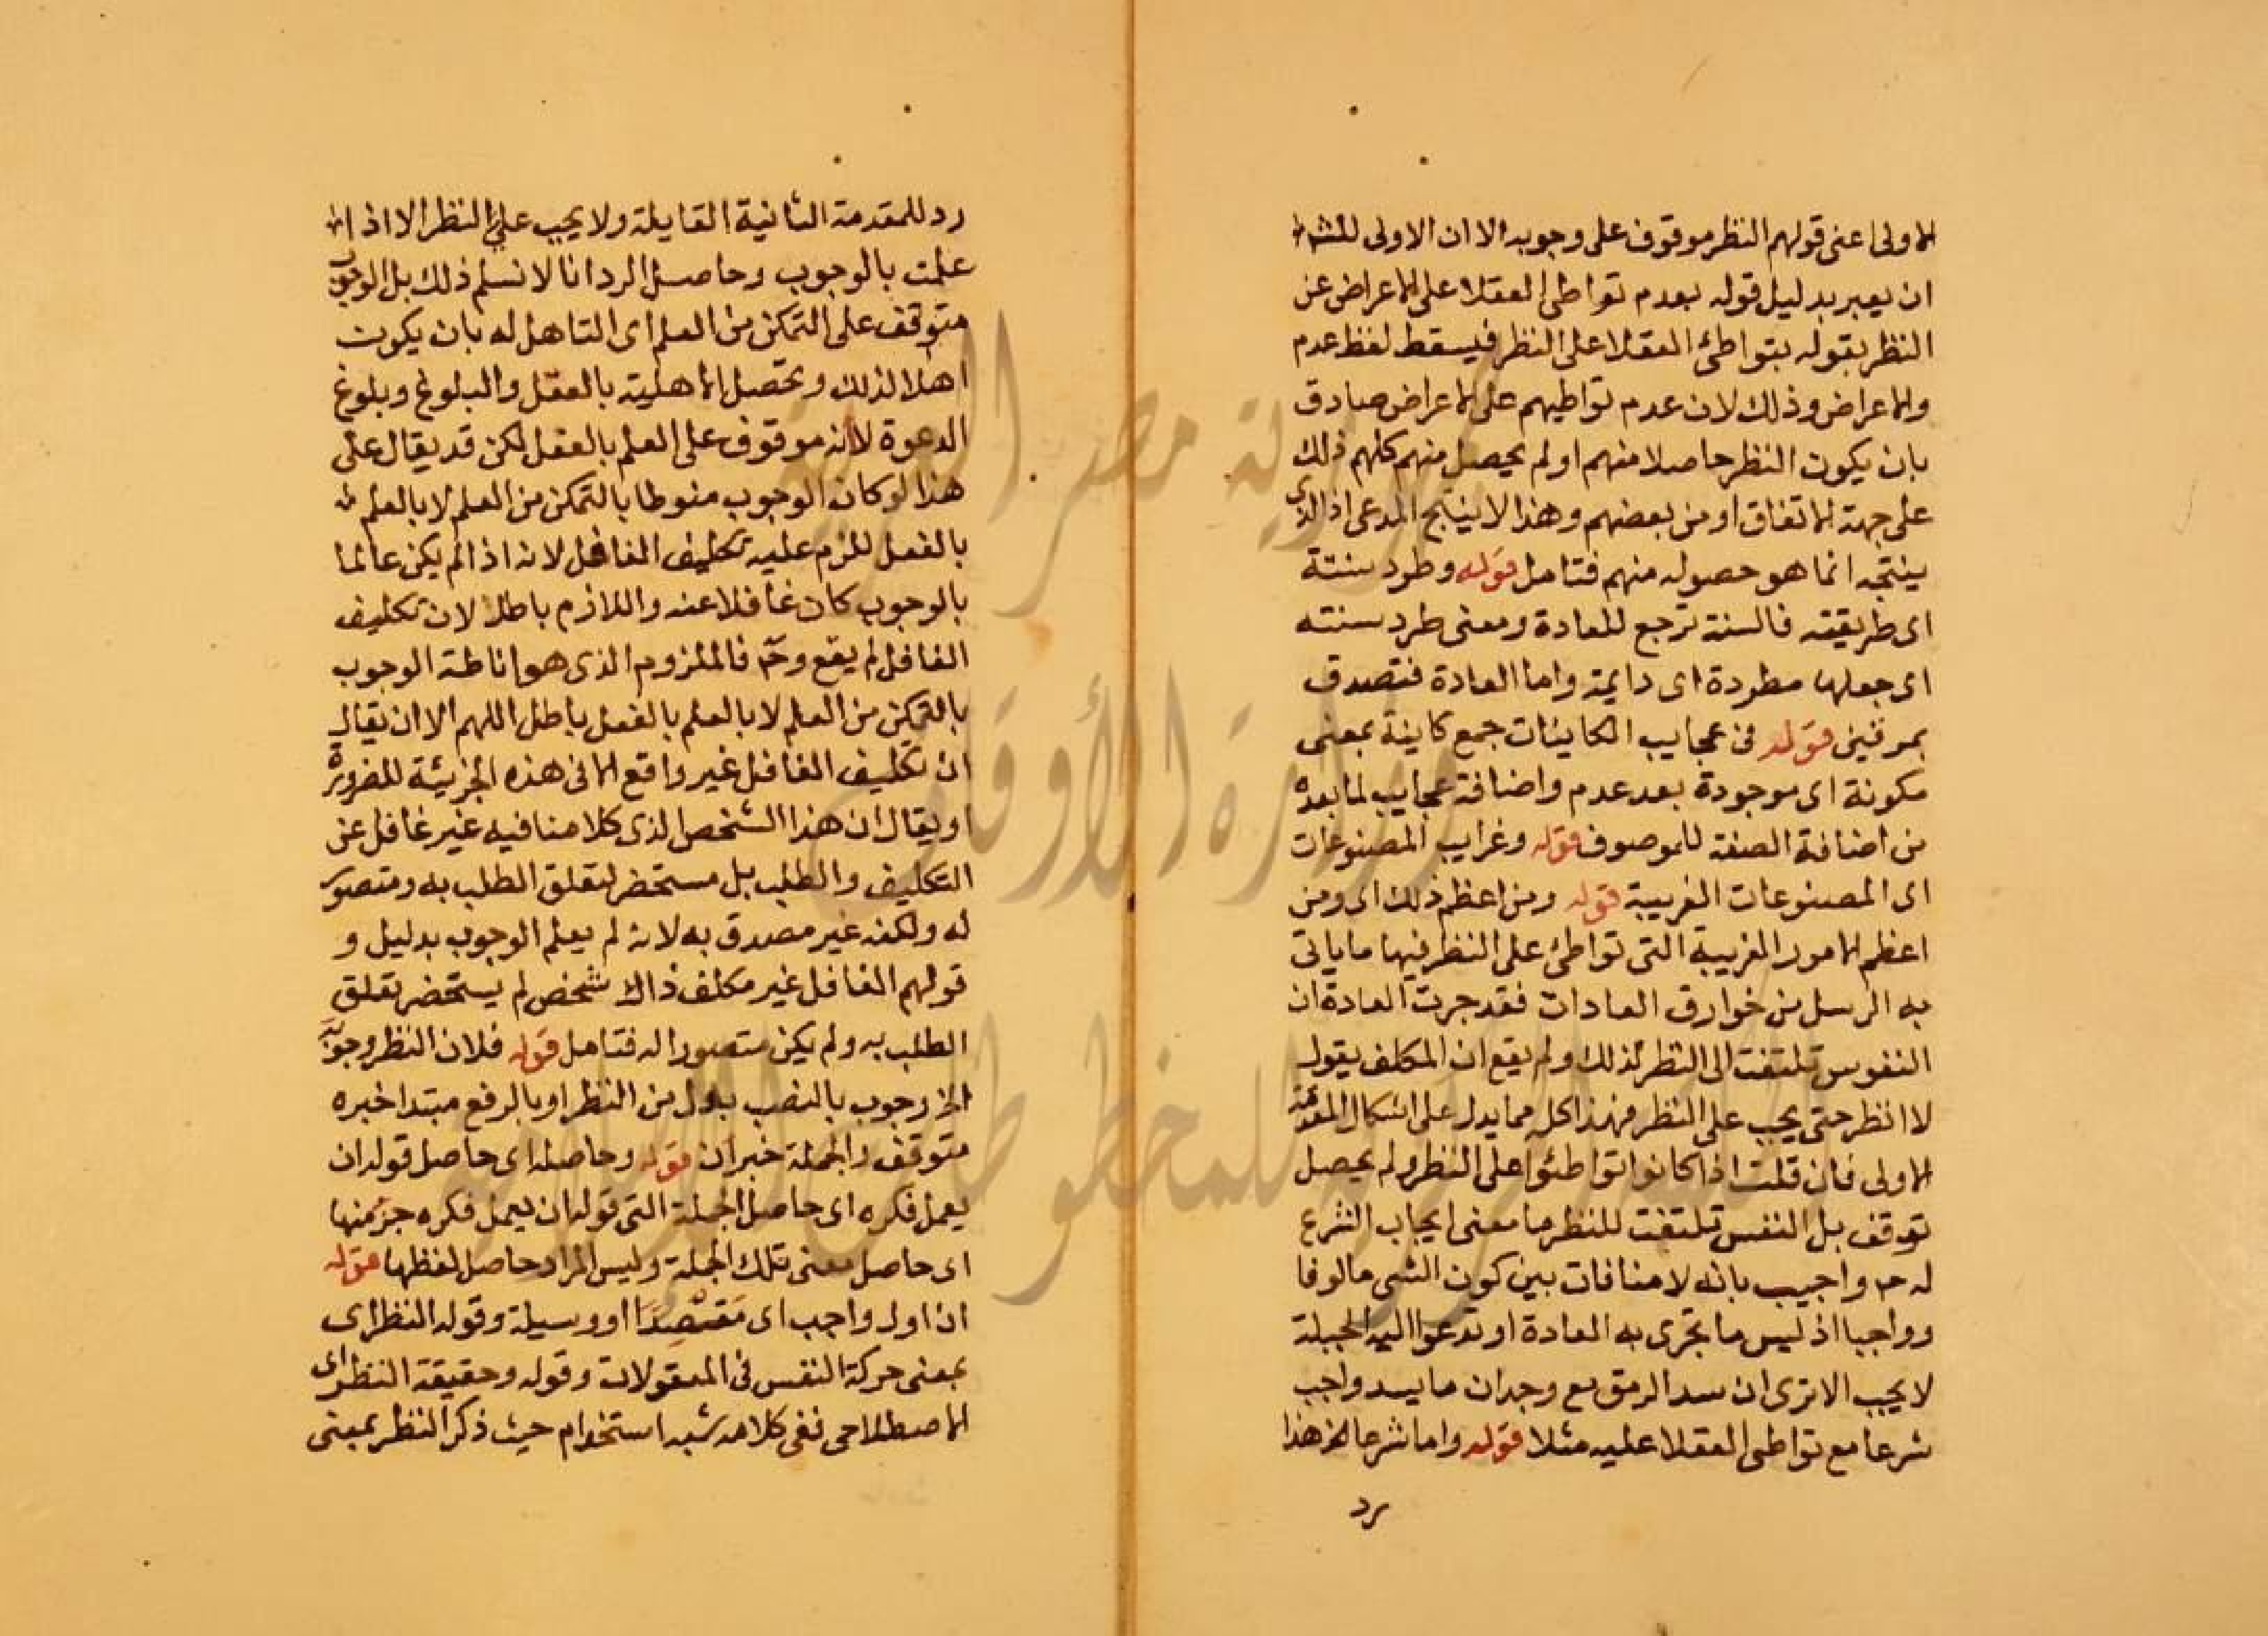 الاولى اعنى قولهم النظر موقوف على وجوبه الا ان الاولى للش
ان يعبر بدليل قوله بعدم تواطى العقلا على الاعراض عن
النظر بقوله بتواطئ العقلا على النظر فيسقط لفظ عدم
والاعراض وذلك لان عدم تواطيهم على الاعراض صادق
بان يكون النظر حاصلا منهم او لم يحصل منهم كلهم ذلك
على جهة الاتفاق او من بعضهم وهذا لا ينتج المدعى اذ الذى
ينتجه انما هو حصوله منهم فتامل قوله وطرد سنتة
اى طريقته فالسنة ترجع للعادة ومعنى طرد سنته
اى جعلها مطردة اى دايمة واما العادة فتصدق
بمرتين قوله فى عجايب الكاينات جمع كاينة بمعنى
مكونة اى موجودة بعد عدم واضافة عجايب لما بعده
من اضافة الصفة للموصوف قوله وغرايب المصنوعات
اى المصنوعات الغريبة قوله ومن اعظم ذلك اى ومن
اعظم الامور الغريبة التى تواطئ على النظر فيها ما ياتى
به الرسل من خوارق العادات فقد جرت العادة ان
النفوس تلتفت الى النظر لذلك ولم يقع ان المكلف يقول
لا انظر حتى يجب على النظر فهذا كله مما يدل على اشكال المقدمة
الاولى فان قلت اذا كانوا تواطئوا على النظر ولم يحصل
توقف بل النفس تلتفت للنظر ما معنى ايجاب الشرع
له ح واجيب بانه لا منافات بين كون الشى مالوفا
وواجبا اذ ليس ما تجرى به العادة او تدعوا اليه الجبلة
لا يجب الا ترى ان سد الرمق مع وجدان ما يسد واجب
شرعا مع تواطى العقلا عليه مثلا قوله واما شرعا الخ هذا
رد
رد للمقدمة الثانية القايلة ولا يجب على النظر الا اذا
علمت بالوجوب وحاصل الرد انا لا نسلم ذلك بل الوجوب
متوقف على التمكن من العلم اى التاهل له بان يكون
اهلا لذلك وتحصل الاهلية بالعقل والبلوغ وبلوغ
الدعوة لا انه موقوف على العلم بالفعل لكن قد يقال على
هذا لو كان الوجوب منوطا بالتمكن من العلم لا بالعلم
بالفعل للزم عليه تكليف الغافل لانه اذا لم يكن عالما
بالوجوب كان غافلا عنه واللازم باطل لان تكليف
الغافل لم يقع وح فالملزوم الذى هو اناطة الوجوب
بالتمكن من العلم لا بالعلم بالفعل باطل اللهم الا ان يقال
ان تكليف الغافل غير واقع الا فى هذه الجزئية للضرورة
او يقال ان هذا الشخص الذى كلامنا فيه غير غافل عن
التكليف والطلب بل مستحضر لتعلق الطلب به ومتصور
له ولكنه غير مصدق به لانه لم يعلم الوجوب بدليل و
قولهم الغافل غير مكلف ذاك شخص لم يستحضر تعلق
الطلب به ولم يكن متصورا له فتامل قوله فلان النظر وجوبه
الخ وجوب بالنصب بدل من النظر او بالرفع مبتدا خبره
متوقف والجملة خبر ان قوله وحاصله اى حاصل قوله ان
يعمل فكره اى حاصل الجملة التى قوله ان يعمل فكره جزء منها
اى حاصل معنى تلك الجملة وليس المراد حاصل لفظها قوله
ان اول واجب اى مقصدا او وسيلة وقوله النظر اى
بمعنى حركة النفس فى المعقولات وقوله وحقيقة النظر اى
الاصطلاحى ففى كلامه شبه استخدام حيث ذكر النظر بمعنى